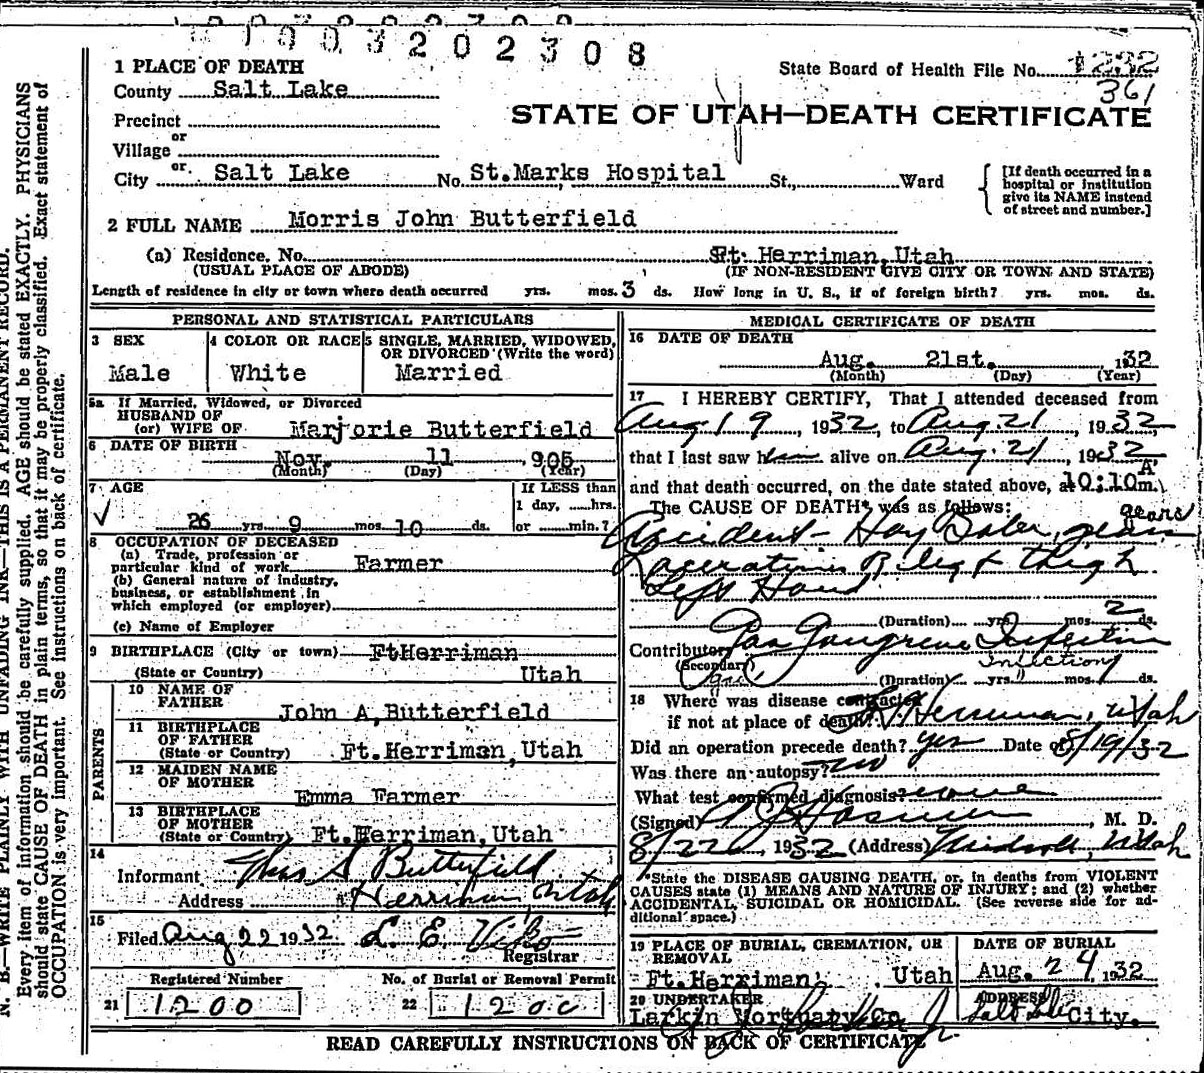 1003202308
1 PLACE OF DEATH
State Board of Health File No. 1232
County Salt Lake
361
STATE OF UTAH—DEATH CERTIFICATE
Precinct
or
Village
or
City Salt Lake No. St.Marks Hospital St., Ward
[If death occurred in a hospital or institution give its NAME instead of street and number.]
2 FULL NAME Morris John Butterfield
(a) Residence, No. Ft. Herriman, Utah
(USUAL PLACE OF ABODE) (IF NON-RESIDENT GIVE CITY OR TOWN AND STATE)
Length of residence in city or town where death occurred yrs. mos. 3 ds. How long in U. S., if of foreign birth? yrs. mos. ds.
PERSONAL AND STATISTICAL PARTICULARS
3 SEX 4 COLOR OR RACE 5 SINGLE, MARRIED, WIDOWED,
OR DIVORCED (Write the word)
Male White Married
5a If Married, Widowed, or Divorced
HUSBAND OF
(or) WIFE OF Marjorie Butterfield
6 DATE OF BIRTH
Nov. 11 905
(Month) (Day) (Year)
7 AGE If LESS than
1 day, ....hrs.
26 yrs. 9 mos. 10 ds. or ....min.?
8 OCCUPATION OF DECEASED
(a) Trade, profession or
particular kind of work Farmer
(b) General nature of industry,
business, or establishment in
which employed (or employer)
(c) Name of Employer
9 BIRTHPLACE (City or town) FtHerriman
(State or Country) Utah
PARENTS
10 NAME OF
FATHER John A. Butterfield
11 BIRTHPLACE
OF FATHER
(State or Country) Ft.Herriman, Utah
12 MAIDEN NAME
OF MOTHER
Emma Farmer
13 BIRTHPLACE
OF MOTHER
(State or Country) Ft.Herriman, Utah
14
Informant Thos S Butterfield
Address Herriman, Utah
15
Filed Aug 22 1932 L. E.
Registrar
Registered Number No. of Burial or Removal Permit
21 1200 22 1200
MEDICAL CERTIFICATE OF DEATH
16 DATE OF DEATH
Aug. 21st. 132
(Month) (Day) (Year)
17 I HEREBY CERTIFY, That I attended deceased from
Aug 19, 1932, to Aug. 21, 1932
that I last saw him alive on Aug. 21, 1932
A
and that death occurred, on the date stated above, at 10:10 m.
The CAUSE OF DEATH* was as follows:
gears
Accident - Hay Baler, gears
Lacerations R leg & thigh
Left Hand
(Duration) yrs. mos. 2 ds.
Contributory Gas Gangrene Infection
(Secondary) Infection
(Duration) yrs. mos. 1 ds.
18 Where was disease contracted
if not at place of death? Herriman, Utah
Did an operation precede death? yes Date of 8/19/32
Was there an autopsy? no
What test confirmed diagnosis? none
(Signed) M. D.
8/22, 1932 (Address) Midvale, Utah
*State the DISEASE CAUSING DEATH, or, in deaths from VIOLENT
CAUSES state (1) MEANS AND NATURE OF INJURY; and (2) whether
ACCIDENTAL, SUICIDAL OR HOMICIDAL. (See reverse side for ad-
ditional space.)
19 PLACE OF BURIAL, CREMATION, OR
REMOVAL
Ft.Herriman, Utah
DATE OF BURIAL
Aug. 24 1932
20 UNDERTAKER
Larkin Mortuary Co
ADDRESS
Salt Lake City.
READ CAREFULLY INSTRUCTIONS ON BACK OF CERTIFICATE
N. B.—WRITE PLAINLY WITH UNFADING INK—THIS IS A PERMANENT RECORD.
Every item of information should be carefully supplied. AGE should be stated EXACTLY. PHYSICIANS
should state CAUSE OF DEATH in plain terms, so that it may be properly classified. Exact statement of
OCCUPATION is very important. See instructions on back of certificate.